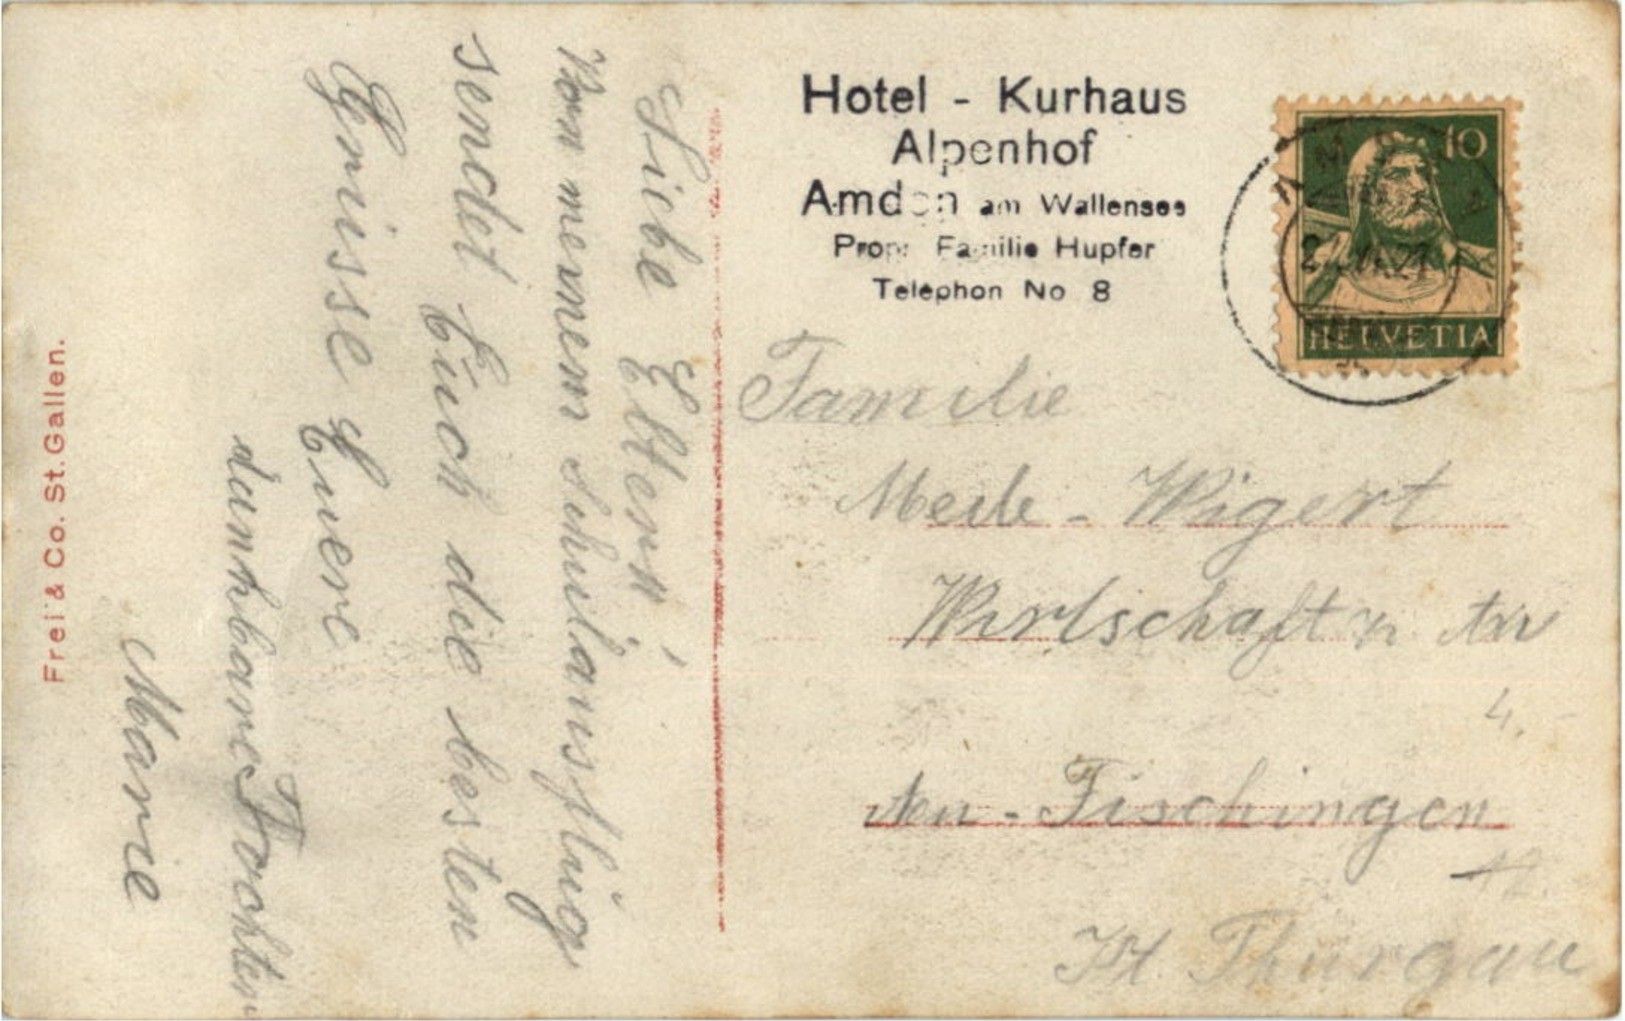 Liebe Eltern!
Von meinem Schulausflug
sendet Euch die besten
Grüsse Euere
dankbare Tochter
Marie
Frei & Co. St. Gallen.
Hotel - Kurhaus
Alpenhof
Amden am Wallensee
Propr Familie Hupfer
Telephon No 8
10
HELVETIA
Familie
Meile - Wigert
Wirtschaft z.
4.
Neu - Fischingen
Kt. Thurgau